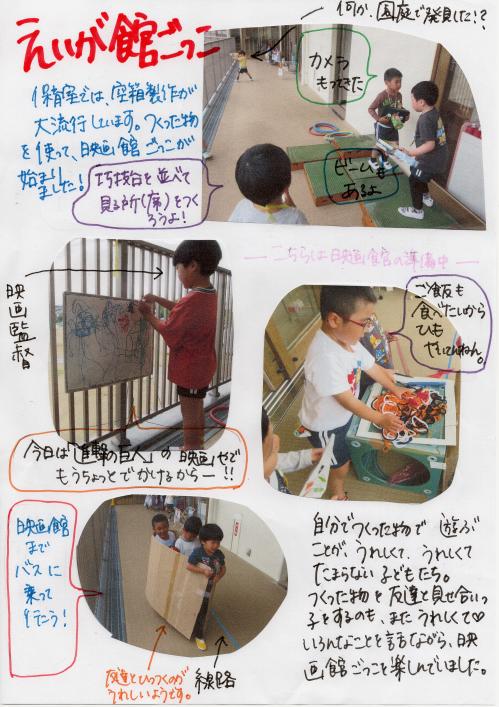 えいが館ごっこ
何か、園庭で発見した!?
保育室では、空箱製作が
大流行しています。つくった物
を使って、映画館ごっこが
始まりました!
カメラ
もってきた
ビームも
あるよ
巧技台を並べて
見る所(席)をつく
ろうよ!
こちらは映画館の準備中
映画監督
ご飯も
食べたいから
ひも
やいてんねん。
今日は「進撃の巨人」の映画やで
もうちょっとでかけるからー!!
映画館
まで
バスに
乗って
行こう!
友達とひっつくのが
うれしいようです。
線路
自分でつくった物で遊ぶ
ことが、うれしくて、うれしくて
たまらない子どもたち。
つくった物を友達と見せ合いっ
子をするのも、またうれしくて♡
いろんなことを話しながら、映
画館ごっこを楽しんでいました。